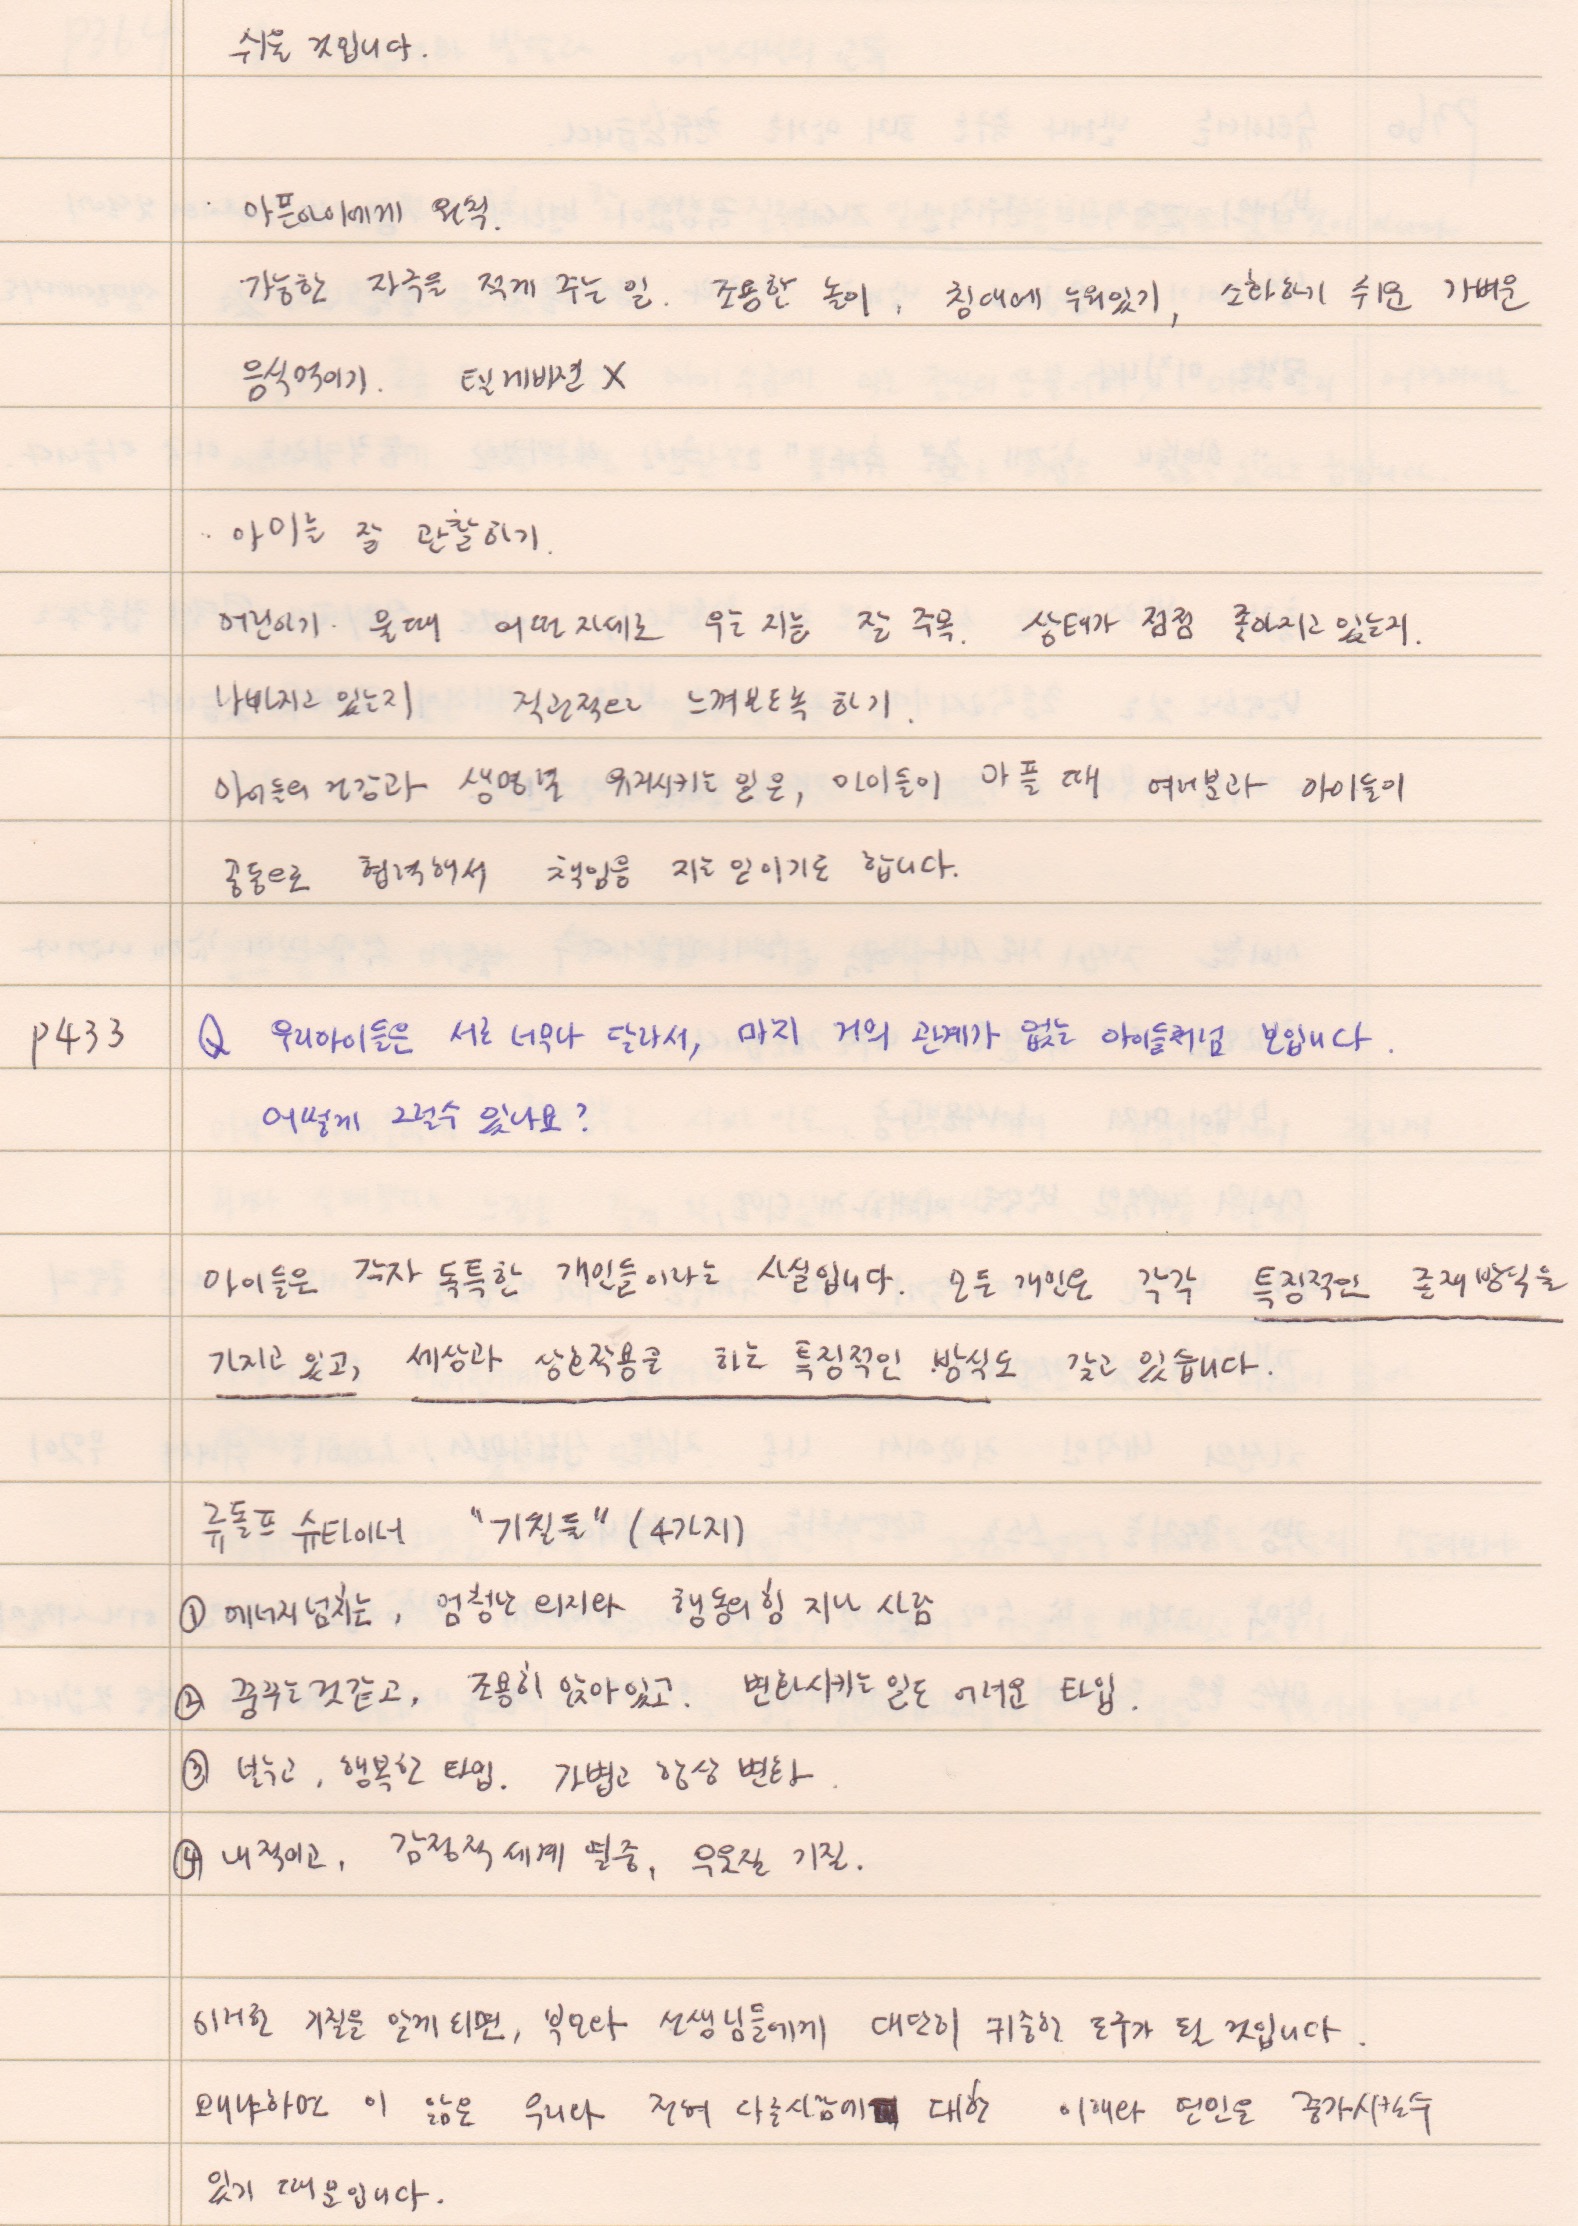 쉬울 것입니다.
· 아픈아이에게 원칙.
가능한 자극을 적게 주는 일. 조용한 놀이, 침대에 누워있기, 소화하기 쉬운 가벼운
음식먹이기. 텔레비젼 X
· 아이를 잘 관찰하기.
어린이가 울때 어떤자세로 우는 지를 잘 주목. 상태가 점점 좋아지고 있는지.
나빠지고 있는지 직관적으로 느껴보도록 하기.
아이들의 건강과 생명력을 유지시키는 일은, 아이들이 아플 때 여러분과 아이들이
공동으로 협력해서 책임을 지는 일이기도 합니다.
p433 Q 우리아이들은 서로 너무나 달라서, 마치 거의 관계가 없는 아이들처럼 보입니다.
어떻게 그럴수 있나요?
아이들은 각자 독특한 개인들이라는 사실입니다. 모든 개인은 각각 특징적인 존재방식을
가지고 있고, 세상과 상호작용을 하는 특징적인 방식도 갖고 있습니다.
루돌프 슈타이너 "기질들" (4가지)
① 에너지넘치는, 엄청난 의지와 행동의 힘 지닌 사람
② 꿈꾸는것같고, 조용히 앉아있고. 변화시키는 일도 어려운 타입.
③ 넘치고, 행복한 타입. 가볍고 항상 변화.
④ 내적이고, 감정적 세계 열중, 우울질 기질.
이러한 기질을 알게되면, 부모와 선생님들에게 대단히 귀중한 도구가 될 것입니다.
왜냐하면 이 앎은 우리와 전혀 다른사람에 대한 이해와 연민을 증가시킬수
있기 때문입니다.